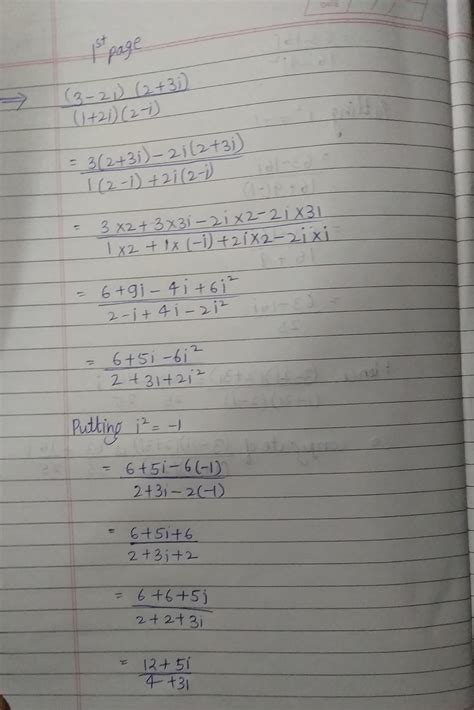 1st page
⇒ (3-2i) (2+3i) / (1+2i) (2-i)
= 3(2+3i) - 2i(2+3i) / 1(2-i) + 2i(2-i)
= 3×2 + 3×3i - 2i×2 - 2i×3i / 1×2 + 1×(-i) + 2i×2 - 2i×i
= 6+9i - 4i + 6i² / 2-i + 4i - 2i²
= 6+5i - 6i² / 2+3i + 2i²
Putting i² = -1
= 6+5i - 6(-1) / 2+3i - 2(-1)
= 6+5i+6 / 2+3i+2
= 6+6+5i / 2+2+3i
= 12+5i / 4+3i